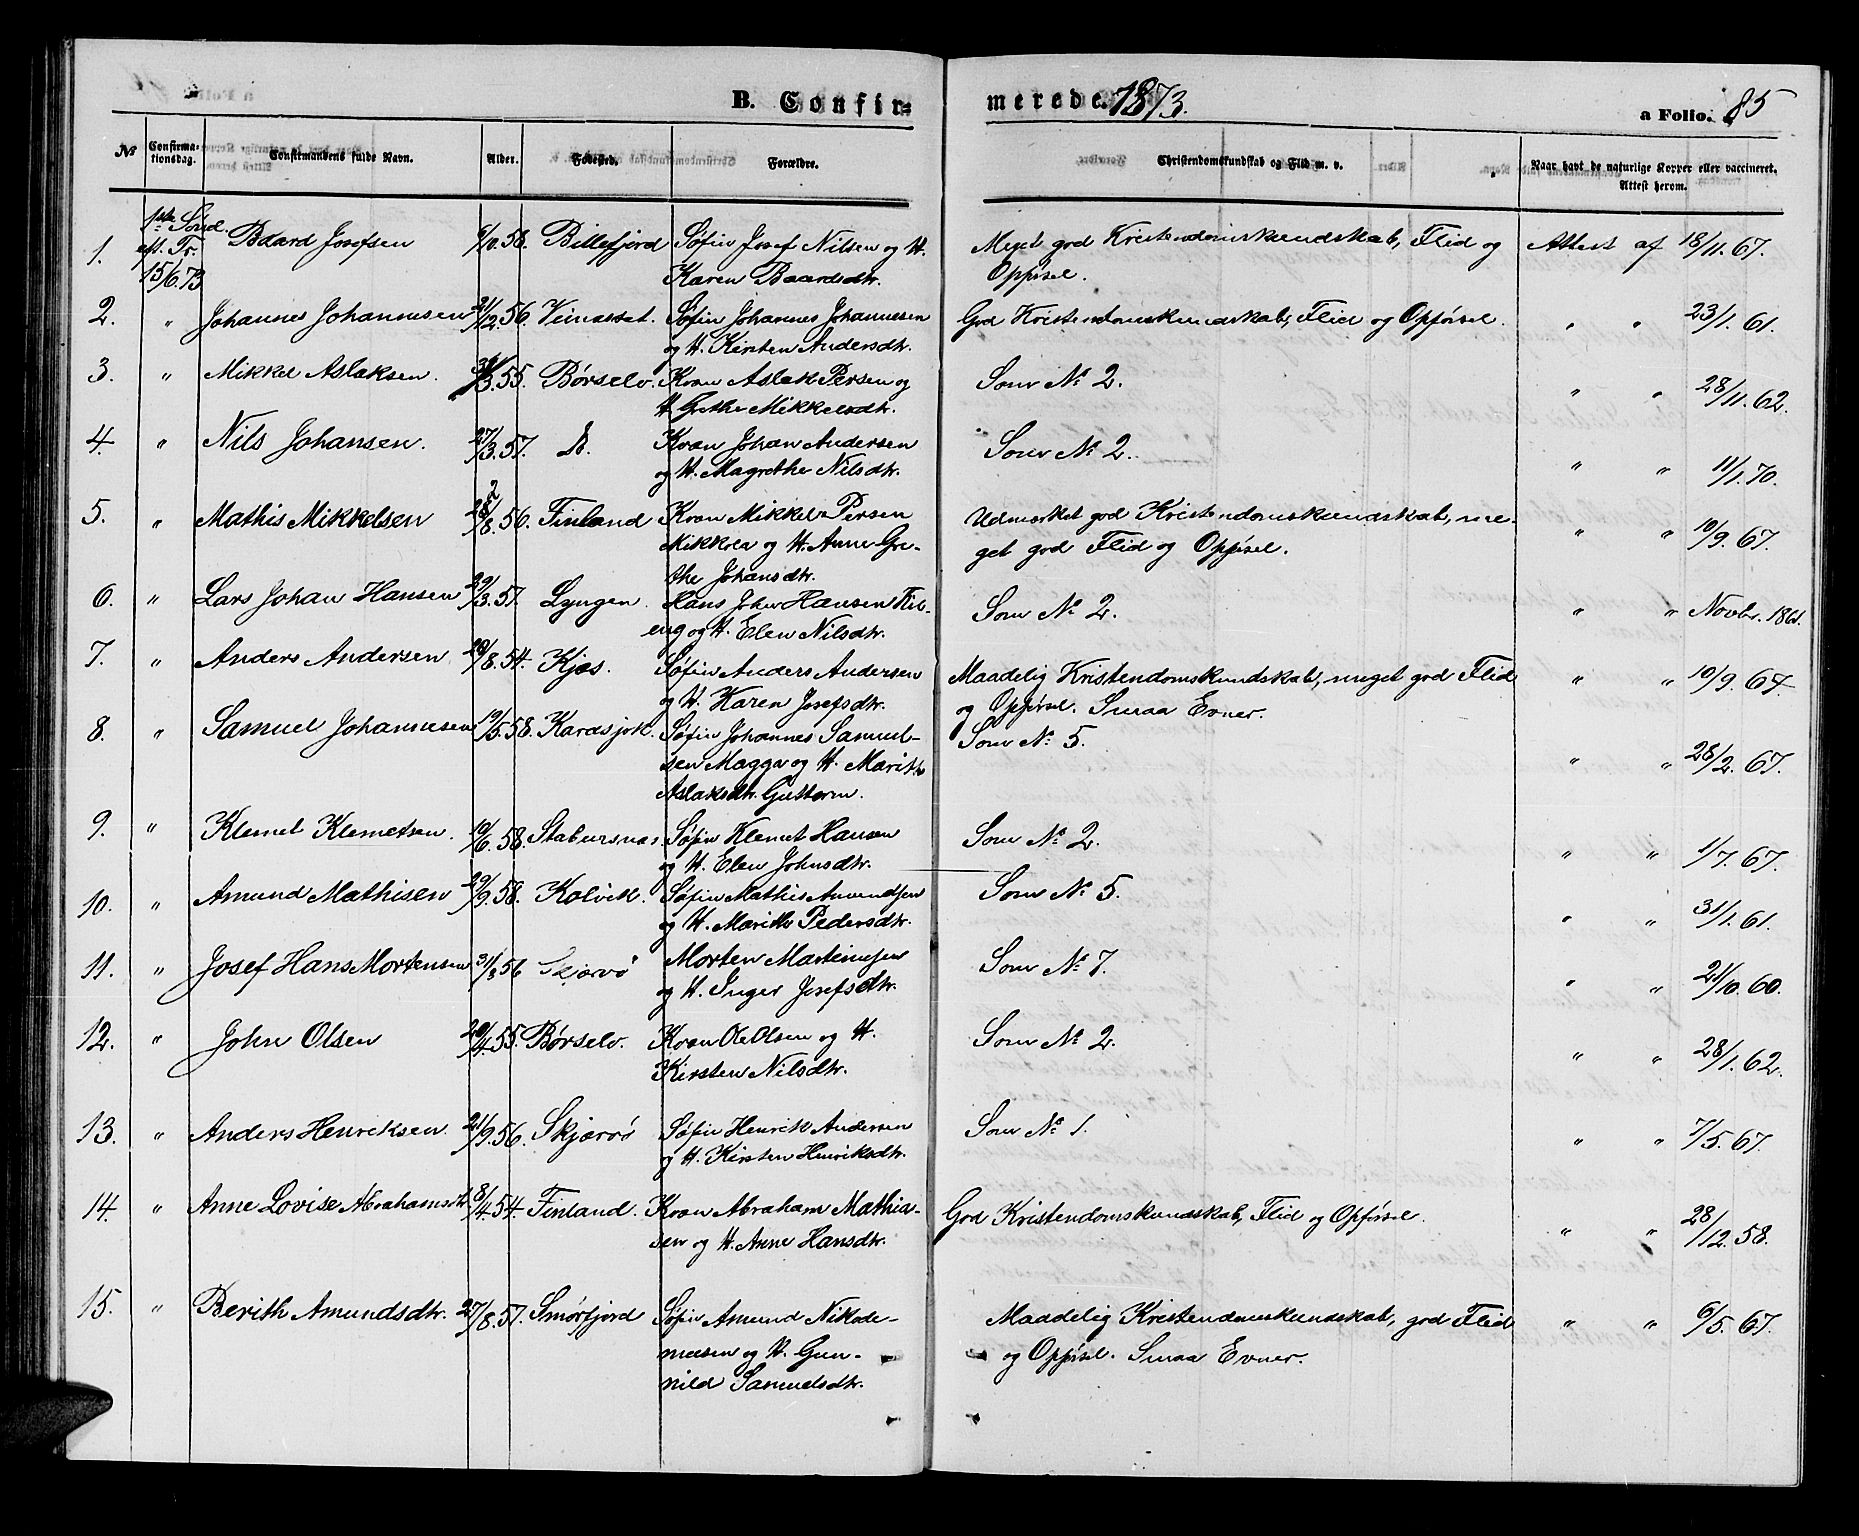 B. Confir-merede. 1873. a Folio. 85
No Confirma-tionsdag. Confirmandens fulde Navn. Alder. Fødested. Forældre. Christendomskundskab og Flid m. v. Naar havt de naturlige Kopper eller vaccineret. Attest herom.
1. 1ste Sønd. eft. Tr. 15/6.73 Baard Josefsen 6/10.56. Billefjord Søfin Josef Nilsen og H. Meget god Kristendomskundskab, Flid og Attest af 18/11.67.
Karen Baardsdtr. Opførsel.
2. " Johannes Johannesen 21/12.56. Søfin Johannes Johannesen God Kristendomskundskab, Flid og Opførsel. " " 23/1.61.
og H. Kirsten Andersdtr.
3. " Mikkel Aslaksen. /3.55. Børselv. Kvan Aslak Persen og Som No 2. " " 28/11.62.
H. Grethe Mikkelsdtr.
4. " Nils Johansen. 27/3.57. D. Kvan Johan Andersen Som No 2. " " 11/1.70.
og H. Magrethe Nilsdtr.
5. " Mathis Mikkelsen /8.56. Finland Kvan Mikkel Persen Udmærket god Kristendomskundskab, me- " " 10/9.67.
Mikkola og H. Anne Gre- get god Flid og Opførsel.
the Johansdtr.
6. " Lars Johan Hansen 29/3.57. Lyngen. Hans Johan Hansen Kil- Som No 2. " " Novbr. 1861.
eng og H. Elen Nilsdtr.
7. " Anders Andersen 20/8.54. Kjæs. Søfin Anders Andersen Maadelig Kristendomskundskab, meget god Flid " " 10/9.67
og H. Karen Josefsdtr. og Opførsel. Smaa Evner.
8. " Samuel Johannesen 19/5.58. Karasjok. Søfin Johannes Samuel- Som No 5. " " 28/2.67.
sen Magga og H. Marith
Aslaksdtr. Guttorm.
9. " Klemet Klemetsen. 10/6.58. Stabursnæs. Søfin Klemet Hansen Som No 2. " " 1/7.67.
og H. Elen Johnsdtr.
10. " Amund Mathisen 29/9.58. Kolvik. Søfin Mathis Amundsen Som No 5. " " 31/1.61.
og H. Marith Pedersdtr.
11. " Josef Hans Mortensen 31/8.56 Skjærvø Morten Martinusen Som No 7. " " 21/10.60.
og H. Inger Josefsdtr.
12. " John Olsen 20/4.55. Børselv. Kvan Ole Olsen og H. Som No 2. " " 28/1.62.
Kirsten Nilsdtr.
13. " Anders Henriksen. 21/9.56. Skjærvø Søfin Henrik Andersen Som No 1. " " 7/5.67.
og H. Kirsten Henriksdtr.
14. " Anne Lovise Abrahamsdtr. 8/4.54. Finland. Kvan Abraham Mathia- God Kristendomskundskab, Flid og Opførsel. " " 28/12.58.
sen og H. Anne Hansdtr.
15. " Berith Amundsdtr. 27/8.57. Smørfjord Søfin Amund Nikode- Maadelig Kristendomskundskab, god Flid " " 6/5.67.
musen og H. Gun- og Opførsel. Smaa Evner.
nild Samuelsdtr.